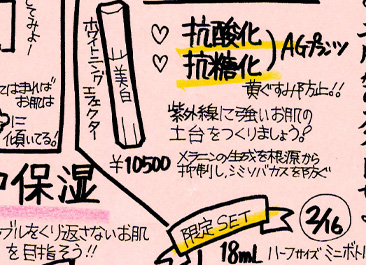 てみよー
ホワイトニングエフェクター
美白
¥10500
♡ 抗酸化
♡ 抗糖化
AGプランツ
黄ぐすみ予防!!
紫外線に強いお肌の
土台をつくりましょう?
メラニンの生成を根源から
抑制し、シミソバカスを防ぐ
お肌は
に
傾いてる!
保湿
ブルをくり返さないお肌
を目指そう!!
限定SET
2/16
18mL ハーフサイズミニボトル